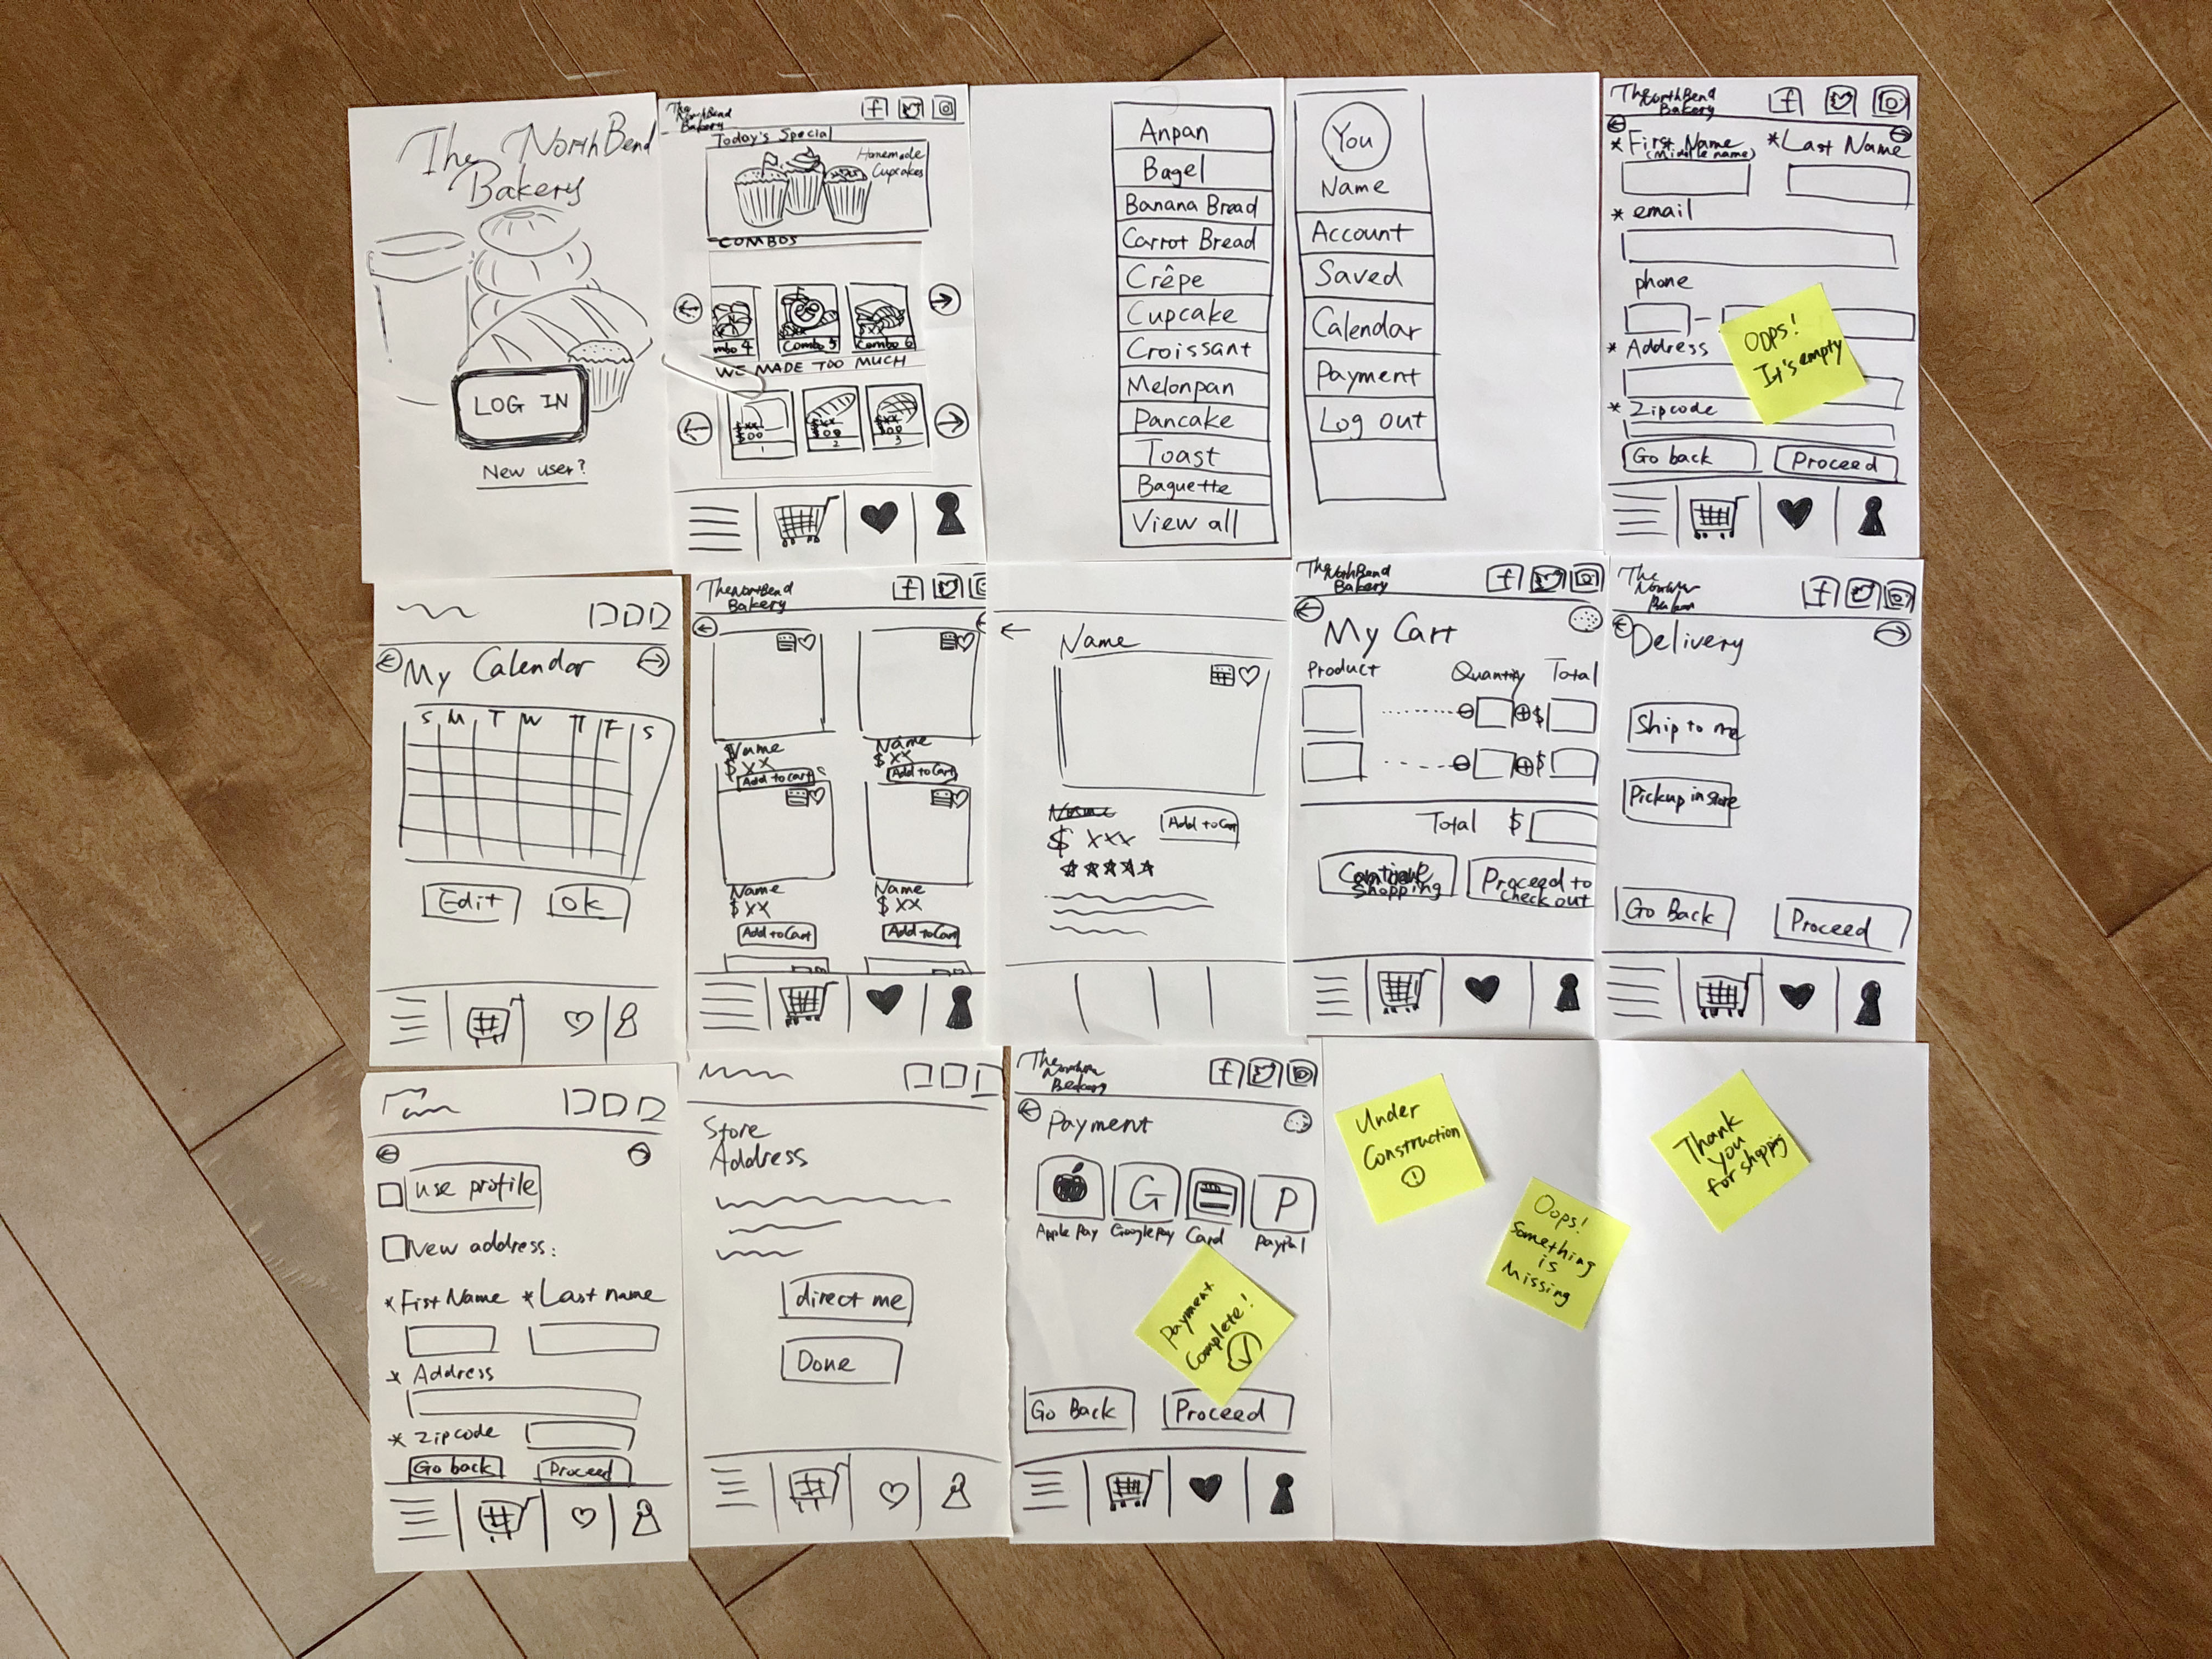 The NorthBend
Bakery
LOG IN
New user?
The
NorthBend
Bakery
f
Today's Special
Homemade
Cupcakes
COMBOS
$XX
$XX
$XX
mbo 4
Combo 5
Combo 6
WE MADE TOO MUCH
$XX
$00
1
$XX
$00
2
$XX
$00
3
Anpan
Bagel
Banana Bread
Carrot Bread
Crêpe
Cupcake
Croissant
Melonpan
Pancake
Toast
Baguette
View all
You
Name
Account
Saved
Calendar
Payment
Log out
The NorthBend
Bakery
f
* First Name
(Middle name)
* Last Name
* email
phone
* Address
* Zipcode
OOPS!
It's empty
Go back
Proceed
My Calendar
S M T W T F S
Edit
OK
The NorthBend
Bakery
f
Name
$ XX
Add to cart
Name
$ XX
Add to Cart
Name
$ XX
Add to Cart
Name
$ XX
Add to Cart
Name
Name
$ XXX
Add to Cart
The NorthBend
Bakery
f
My Cart
Product
Quantity
Total
$
$
Total $
Continue
Shopping
Proceed to
Check out
The
f
Delivery
Ship to me
Pickup in store
Go Back
Proceed
use profile
New address:
* Fist Name
* Last name
* Address
* Zipcode
Go back
Proceed
Store
Address
direct me
Done
The
f
Payment
G
P
Apple Pay
Google Pay
Card
PayPal
Payment
Complete!
Go Back
Proceed
Under
Construction
!
Oops!
Something
is
Missing
Thank
you
for shopping